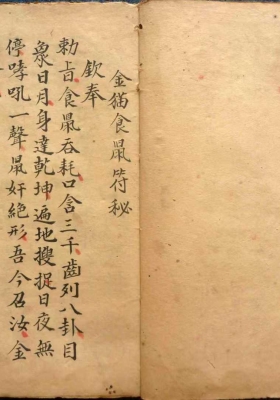 金猫食鼠符秘
欽奉
勅旨食鼠吞耗口含三千齒列八卦目
象日月身達乾坤遍地搜捉日夜無
停哮吼一聲鼠奸絶形吾今召汝金